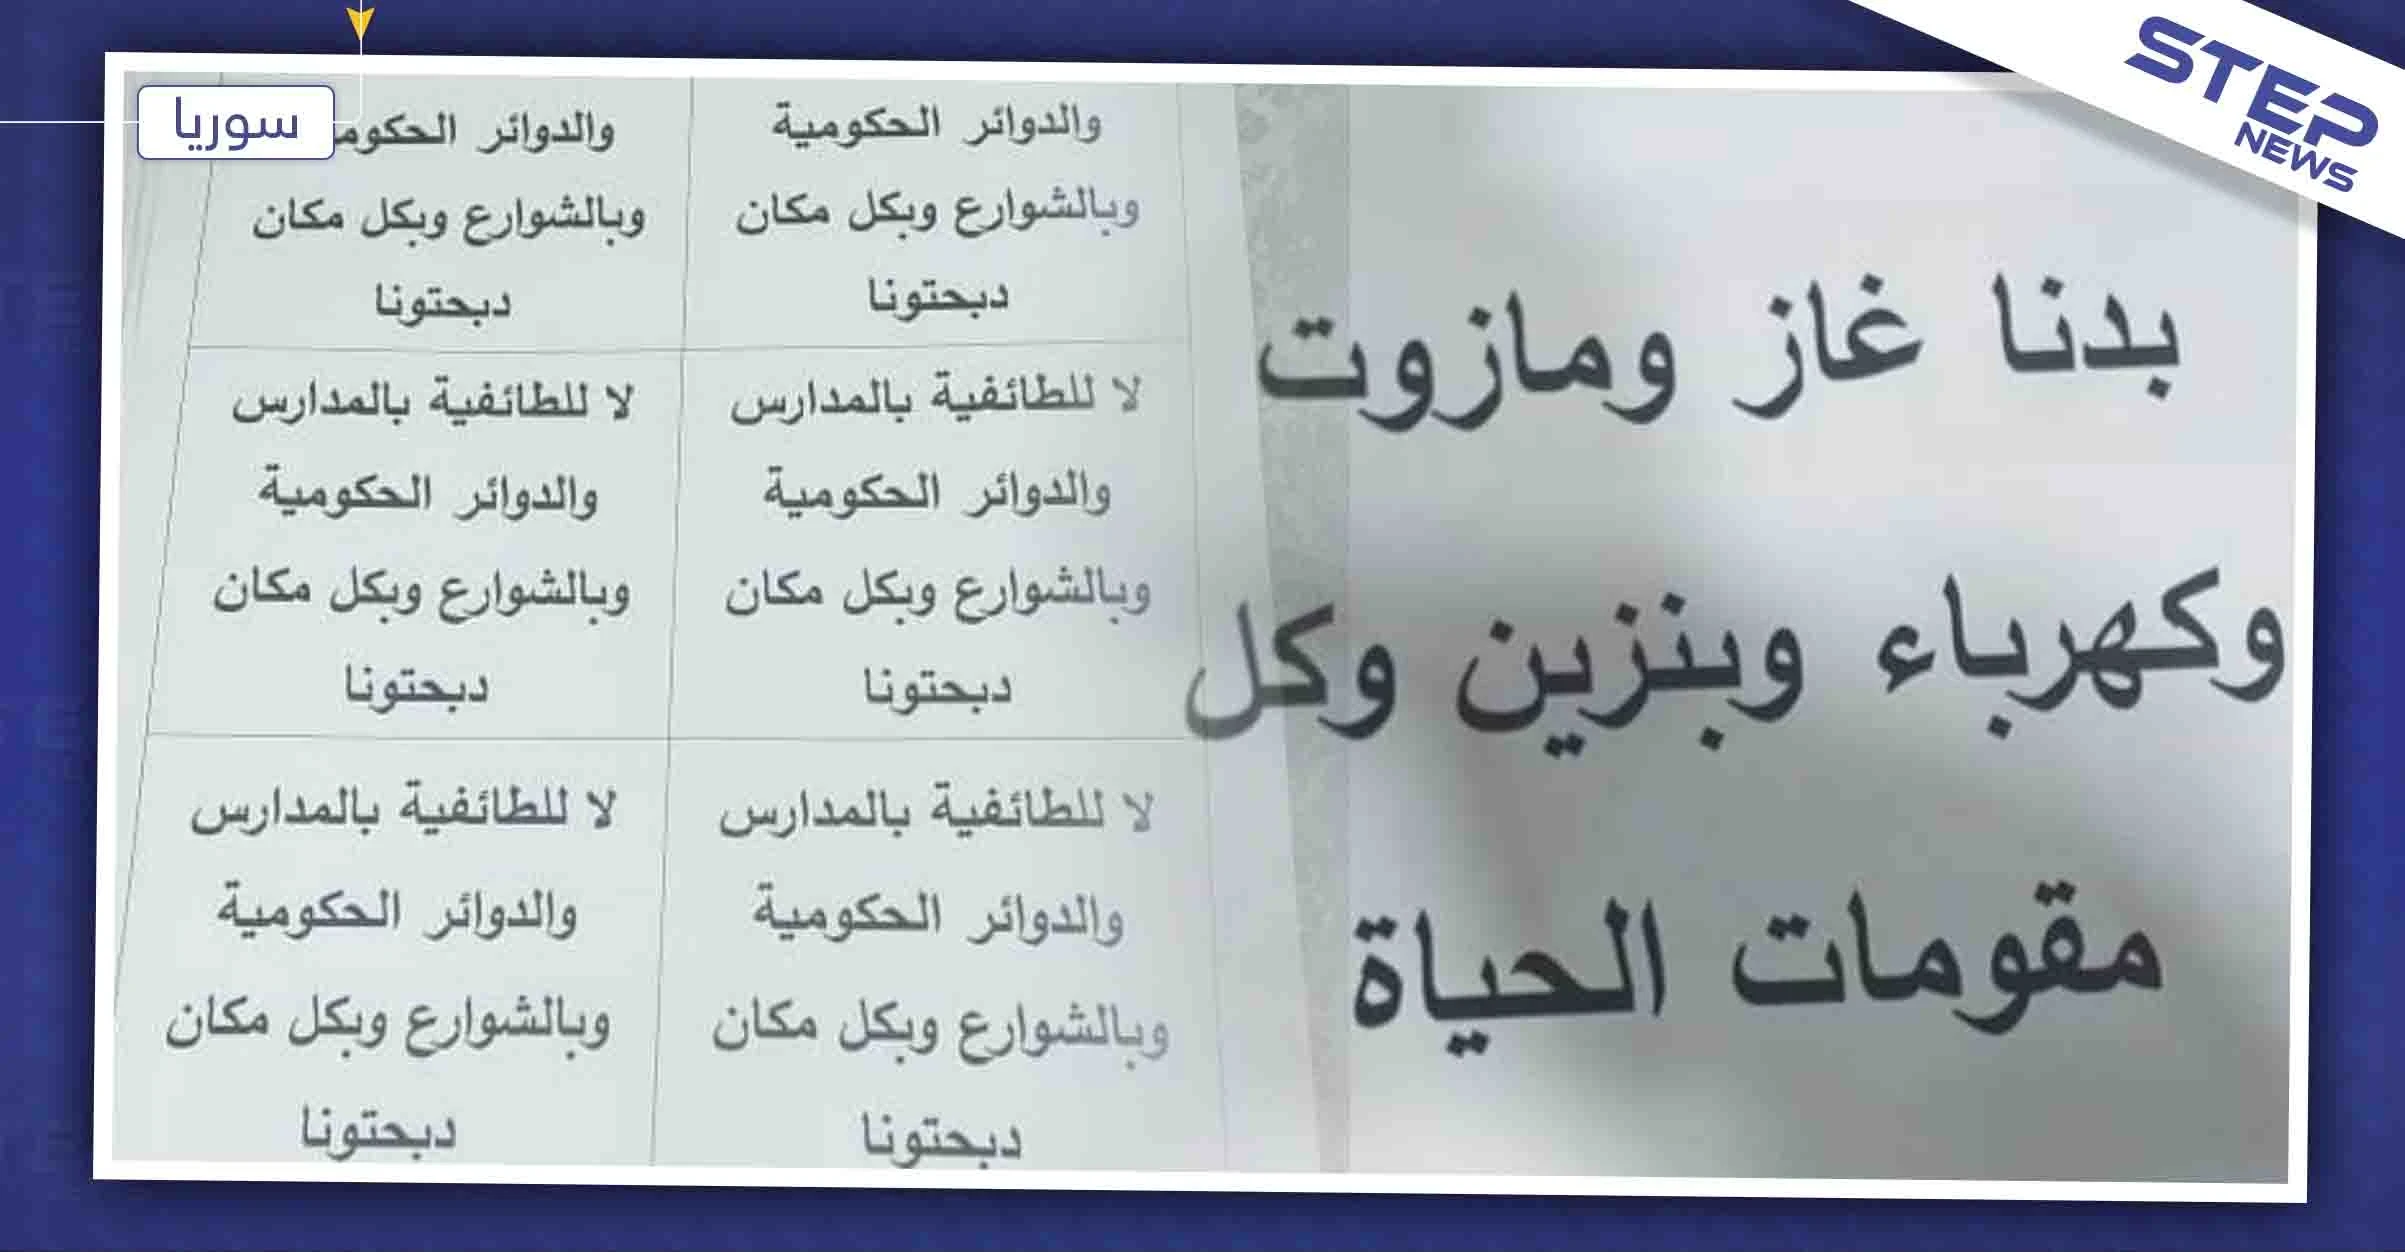 STEP
NEWS
سوريا
بدنا غاز ومازوت
وكهرباء وبنزين وكل
مقومات الحياة
والدوائر الحكومية
وبالشوارع وبكل مكان
دبحتونا
والدوائر الحكوم
وبالشوارع وبكل مكان
دبحتونا
لا للطائفية بالمدارس
والدوائر الحكومية
وبالشوارع وبكل مكان
دبحتونا
لا للطائفية بالمدارس
والدوائر الحكومية
وبالشوارع وبكل مكان
دبحتونا
لا للطائفية بالمدارس
والدوائر الحكومية
وبالشوارع وبكل مكان
دبحتونا
لا للطائفية بالمدارس
والدوائر الحكومية
وبالشوارع وبكل مكان
دبحتونا